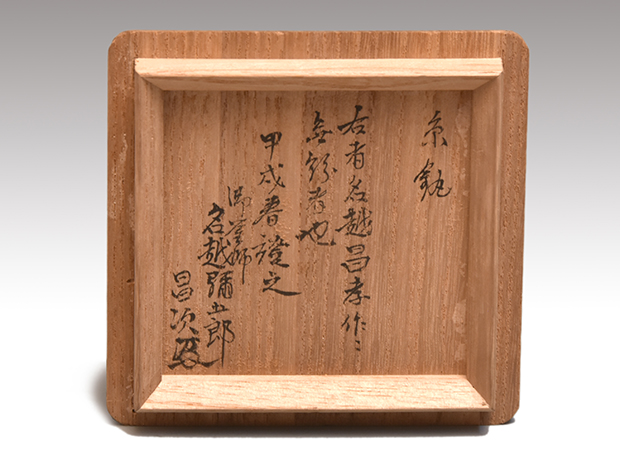 右者名越昌孝作ニ
無紛者也
甲戌春證之
御釜師
名越彌五郎
昌次